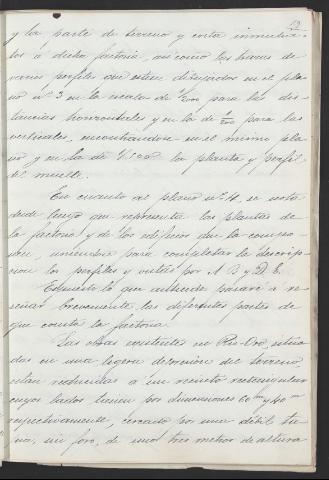 12
y la parte de terreno y costa inmediatos
á dicha factoria, así como los trazos de
varios perfiles que estan dibujados en el pla
no nº 3 en la escala de 1/500 para las dis-
tancias horizontales y en la de 1/200 para las
verticales, encontrandose en el mismo pla
no y en la de 1/200 la planta y perfil
del muelle.
En cuanto al plano nº 4, se nota
desde luego que representa las plantas de
la factoria y de los edificios que la compo-
nen, para completar la descrip-
cion los perfiles y vistas por A B y D E.
Expuesto lo que antecede pasaré a re-
señar brevemente las diferentes partes de
que consta la factoria.
Las obras existentes en Rio-Oro, situa
das en una ligera depresion del terreno,
estan reducidas á un recinto rectangular
cuyos lados tienen por dimensiones 60 m y 40 m
respectivamente, cercado por una débil ta
pia, sin foso, de unos tres metros de altura